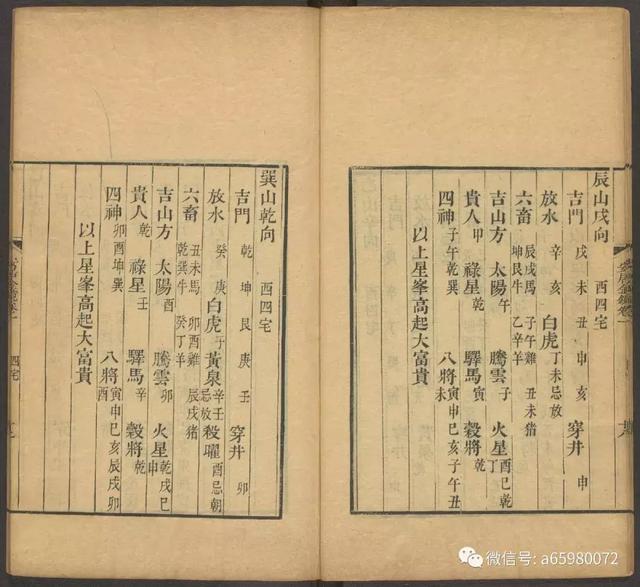 辰山戌向 酉四宅
吉門 戌 未 丑 申 亥 穿井 申
放水 辛 亥 白虎 丁未忌放
六畜 辰戌馬 坤艮牛 子午雞 乙辛羊 丑未猪
吉山方 太陽 午 騰雲 子 火星 酉巳乾丁
貴人 甲 祿星 乾 驛馬 寅 穀將 乾
四神 子午乾巽 八將 寅申巳亥子午丑未
以上星峯高起大富貴
巽山乾向 酉四宅
吉門 乾 坤 艮 庚 壬 穿井 卯
放水 癸 庚 白虎 黃泉 辛壬忌放 殺曜 酉忌朝
六畜 丑未馬 乾巽牛 卯酉雞 癸丁羊 辰戌猪
吉山方 太陽 酉 騰雲 卯 火星 乾戌巳申
貴人 乾 祿星 壬 驛馬 辛 穀將 乾
四神 卯酉坤巽 八將 寅申巳亥辰戌卯酉
以上星峯高起大富貴
四宅
微信号: a65980072